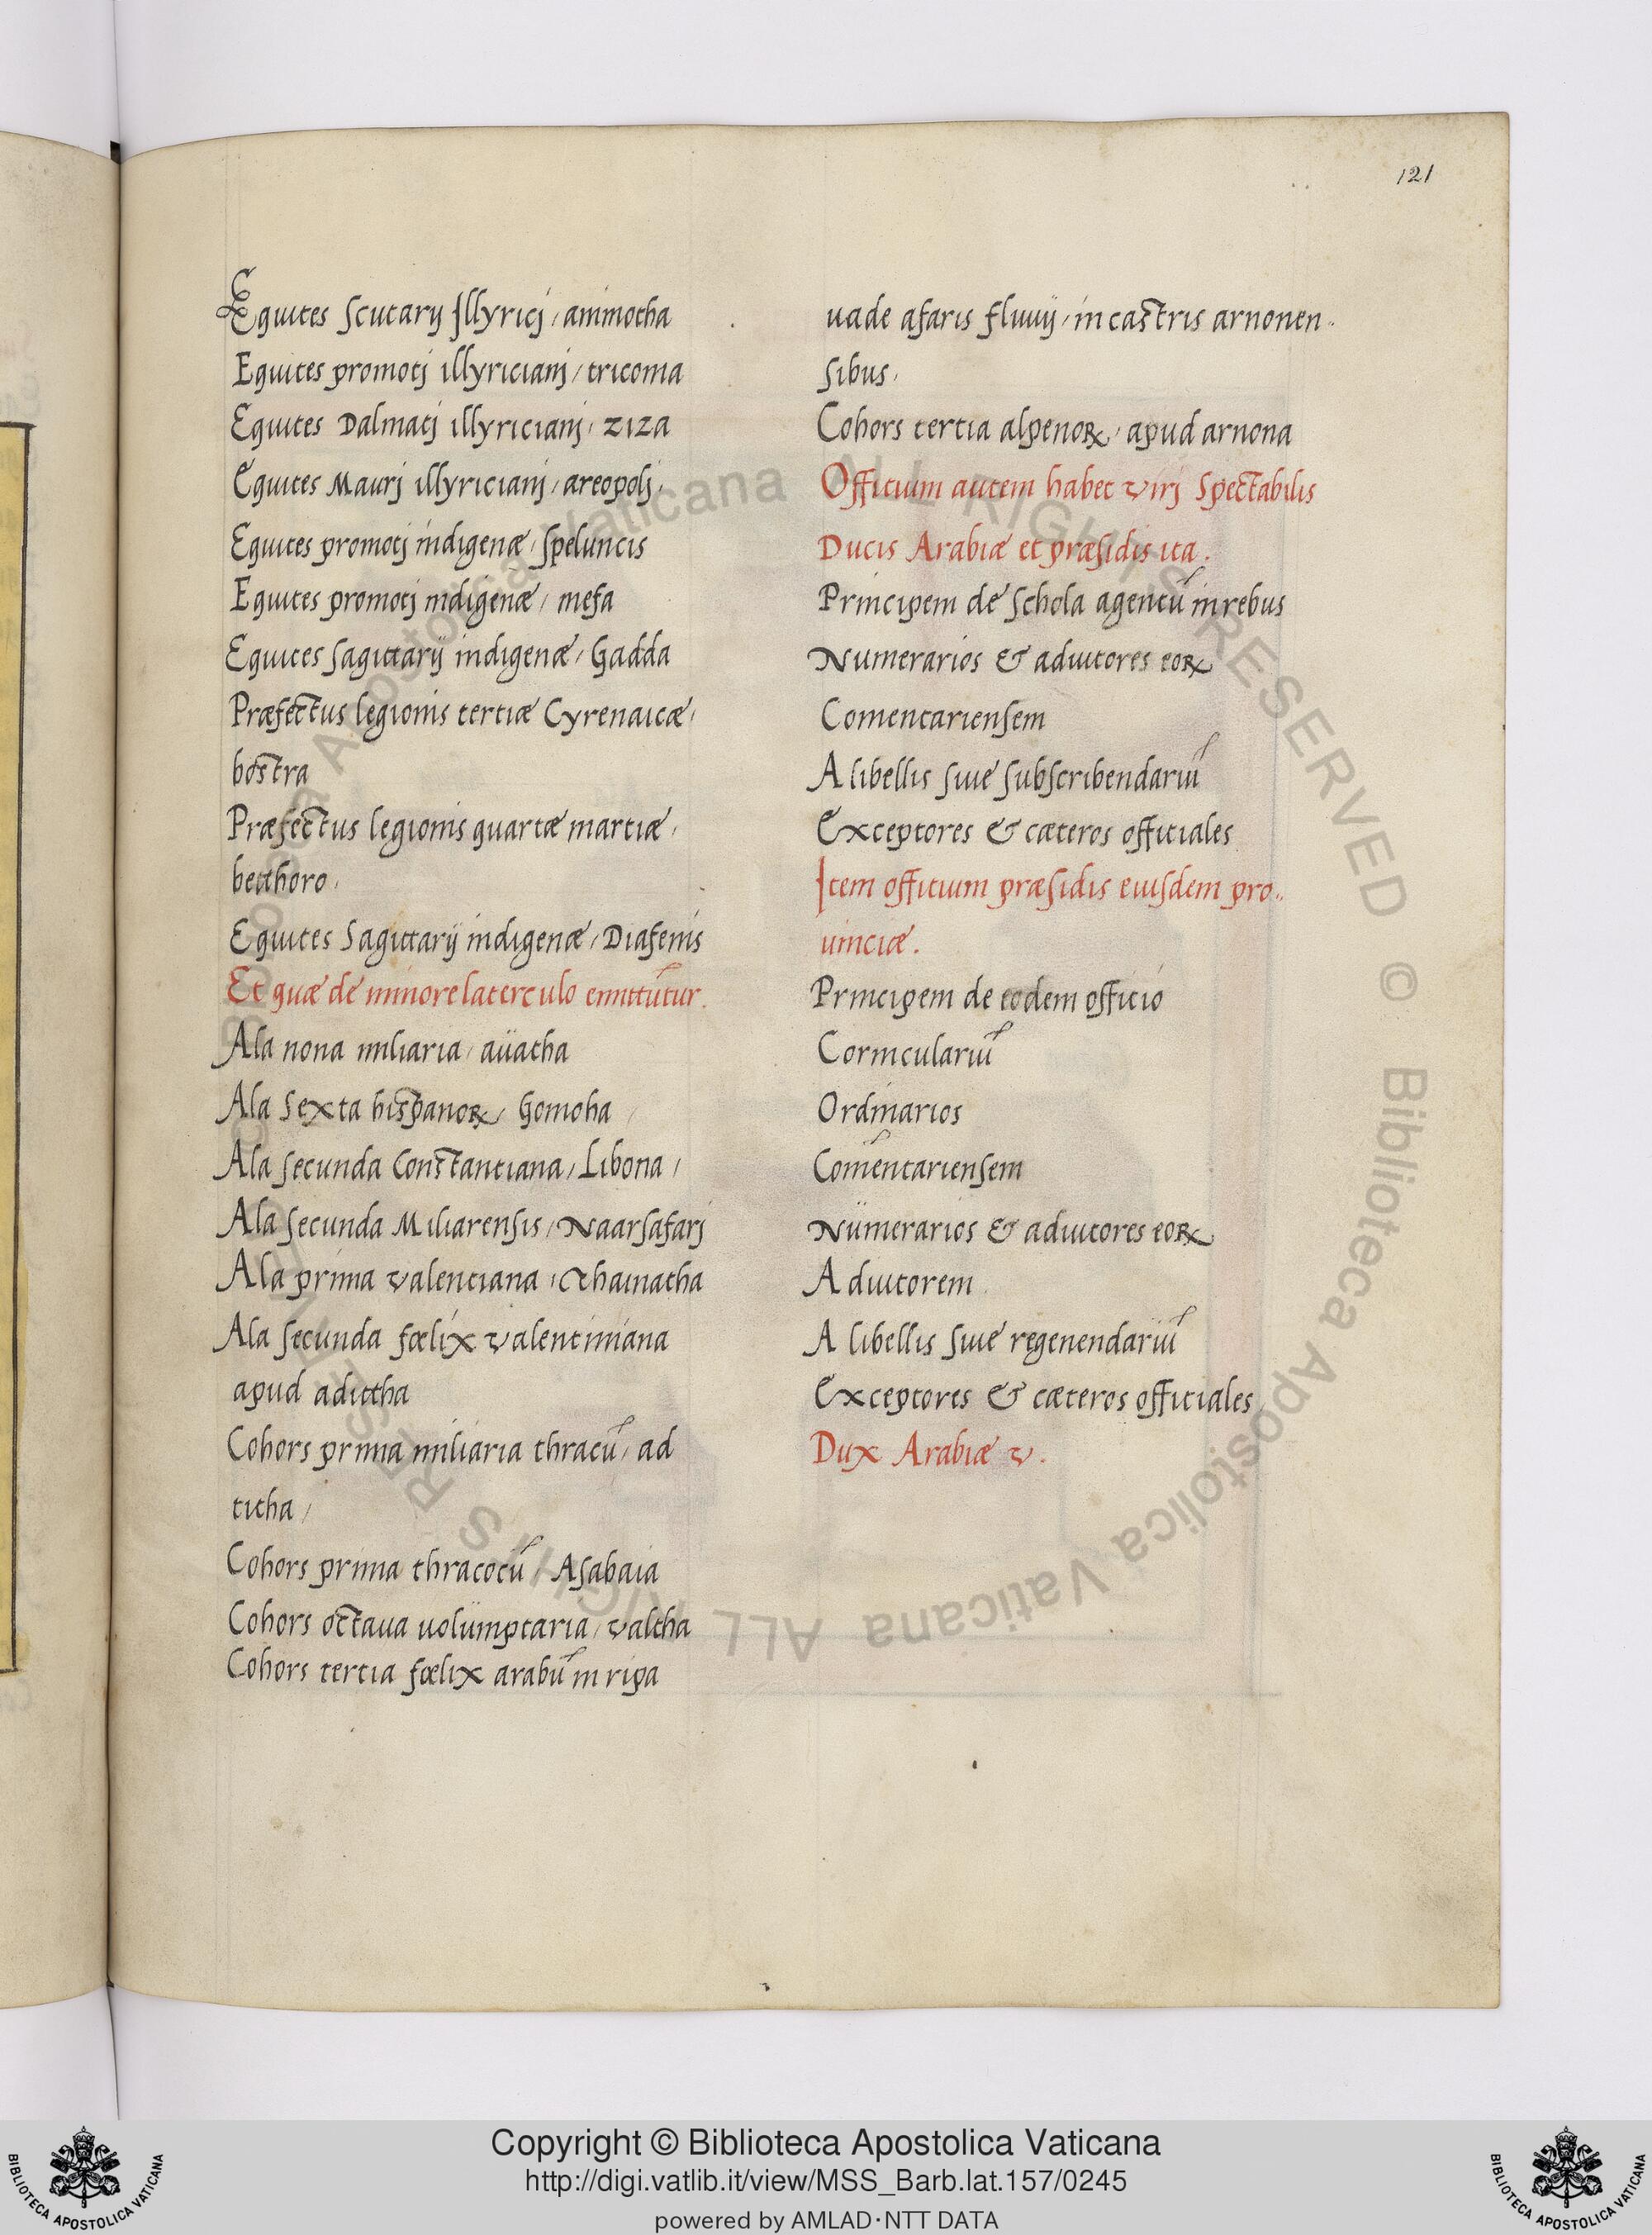 121
Equites Scutarij Illyricj / animotha
Equites promotj illyricianj / tricoma
Equites Dalmatj illyricianj / ziza
Equites Maurj illyricianj / areopolj /
Equites promotj indigenæ / Speluncis
Equites promotj indigenæ / mefa
Equites Sagittarij indigenæ / Gadda
Præfectus legionis tertiæ Cyrenaicæ /
bostra
Præfectus legionis quartæ martiæ /
betthoro /
Equites Sagittarij indigenæ / Diafenis
Et quæ de minore laterculo emittūtur.
Ala nona miliaria / aüatha
Ala Sexta hispanoꝝ / Gomoha /
Ala Secunda Constantiana / Libona /
Ala Secunda Miliarensis / Naarsafarj
Ala prima valentiana / Thainatha
Ala Secunda fœlix valentiniana
apud adittha
Cohors prima miliaria thracū / ad
titha /
Cohors prima thracocū / Asabaia
Cohors octaua uolümptaria / valtha
Cohors tertia fœlix arabū in ripa
uade afaris fluuij / in castris arnonen
sibus /
Cohors tertia alpenoꝝ / apud arnona
Offitium autem habet virj Spectabilis
Ducis Arabiæ et præsidis ita.
Principem de Schola agentū in rebus
Numerarios & adiutores eoꝝ
Comentariensem
A libellis siue subscribendariū
Exceptores & cæteros offitiales
Item offitium præsidis eiusdem pro
uinciæ.
Principem de eodem officio
Corniculariū
Ordinarios
Com̄entariensem
Nümerarios & adiutores eoꝝ
Adiutorem
A libellis siue regenendariū
Exceptores & cæteros offitiales
Dux Arabiæ v.
Biblioteca Apostolica Vaticana ALL RIGHTS RESERVED © Biblioteca Apostolica Vaticana ALL RIGHTS RESERVED ©
Copyright © Biblioteca Apostolica Vaticana
http://digi.vatlib.it/view/MSS_Barb.lat.157/0245
powered by AMLAD·NTT DATA
BIBLIOTECA APOSTOLICA VATICANA
BIBLIOTECA APOSTOLICA VATICANA